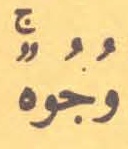 وُجُوهٌۚ